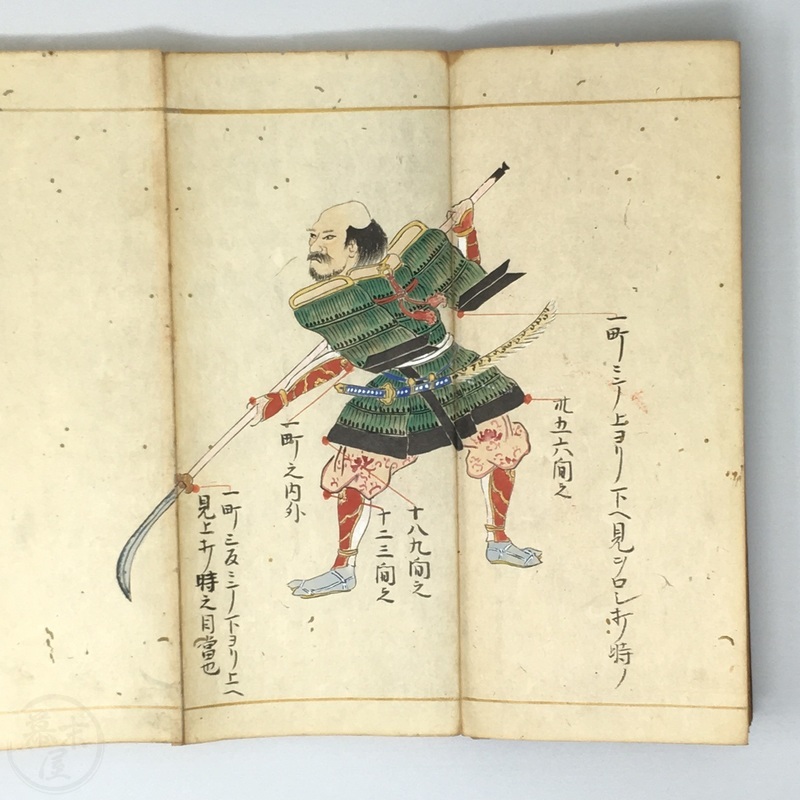 一町ミニノ上ヨリ下ヘ見ヲロシ打時ノ
卅五六間之
十八九間之
十二三間之
一町之内外
一町三反ミニノ下ヨリ上ヘ
見上打時之目當也